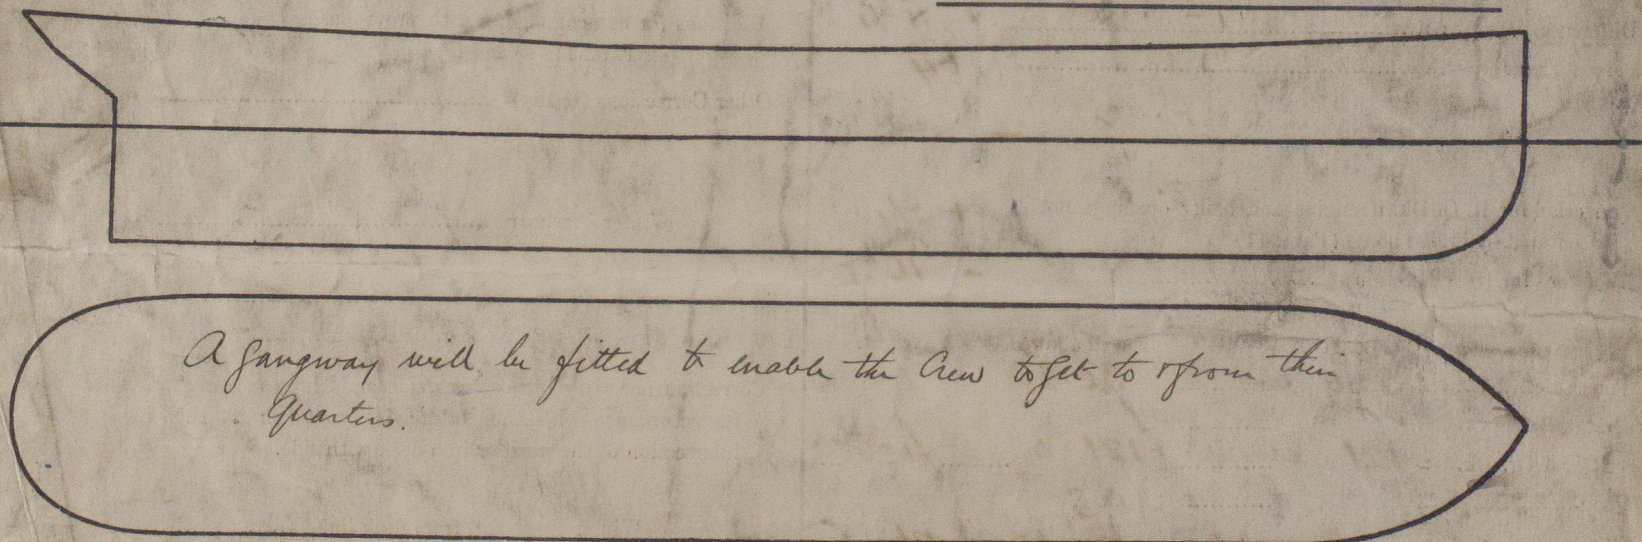 A gangway will be fitted to enable the Crew to get to & from their
Quarters.